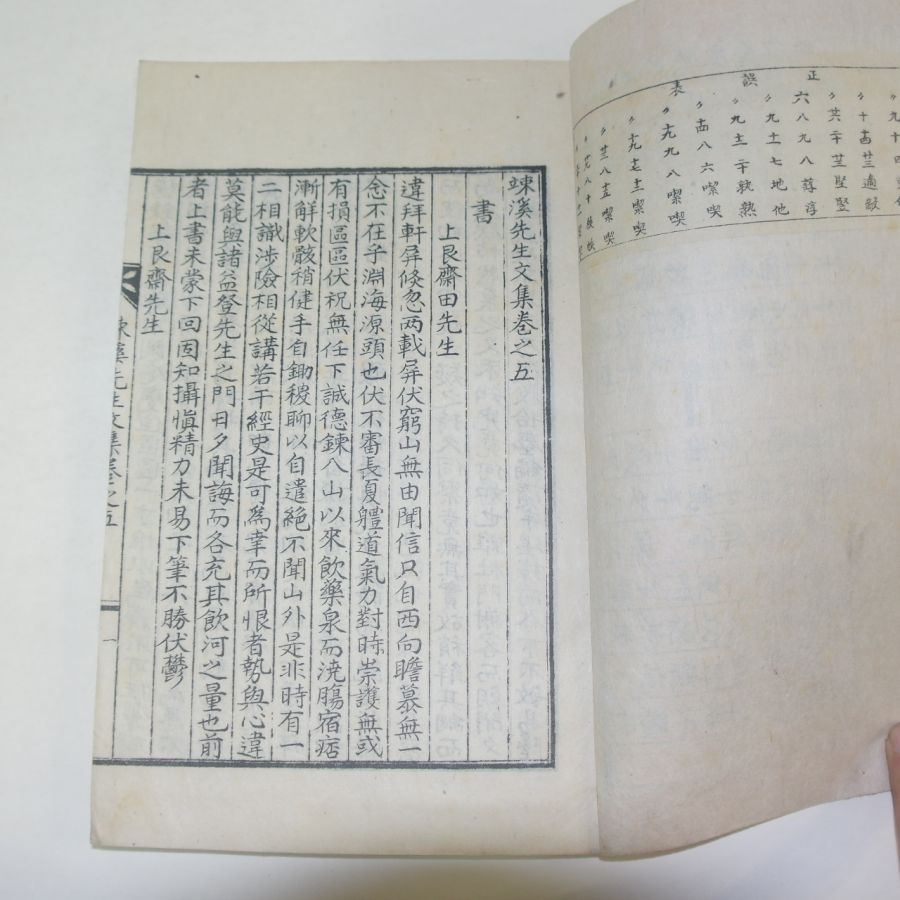 正誤表
六八九八蓴淳
〃九十七地他
〃九十一干孰熱
〃卄八六㗫喫
竦溪先生文集卷之五
書
上艮齋田先生
違拜軒屛倏忽两載屛伏窮山無由聞信只自西向瞻慕無一
念不在乎淵海源頭也伏不審長夏軆道氣力對時崇護無或
有損區區伏祝無任下誠德鍊入山以來飮藥泉而澆膓宿痞
漸解軟骸稍健手自鋤稷聊以自遣絶不聞山外是非時有一
二相識涉險相從講若干經史是可爲幸而所恨者勢與心違
莫能與諸益登先生之門日夕聞誨而各充其飮河之量也前
者上書未蒙下回固知攝愼精力未易下筆不勝伏鬱
上艮齋先生
竦溪先生文集卷之五
一